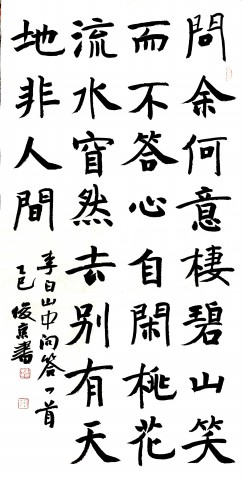 問余何意棲碧山笑
而不答心自閑桃花
流水窅然去別有天
地非人間
李白山中问答一首
乙巳 書